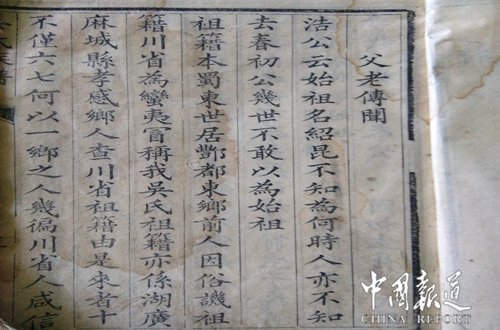 父老傳聞
洁公云始祖名紹昆不知為何時人亦不知
去春初公幾世不敢以為始祖
祖籍本蜀東世居酆都東鄉前人因俗譏祖
籍川省為蠻夷冒稱我吳氏祖籍亦係湖廣
麻城縣孝感鄉人查川省祖籍由是來者十
不僅六七何以一鄉之人幾徧川省人咸信
中國報道
CHINA REPORT